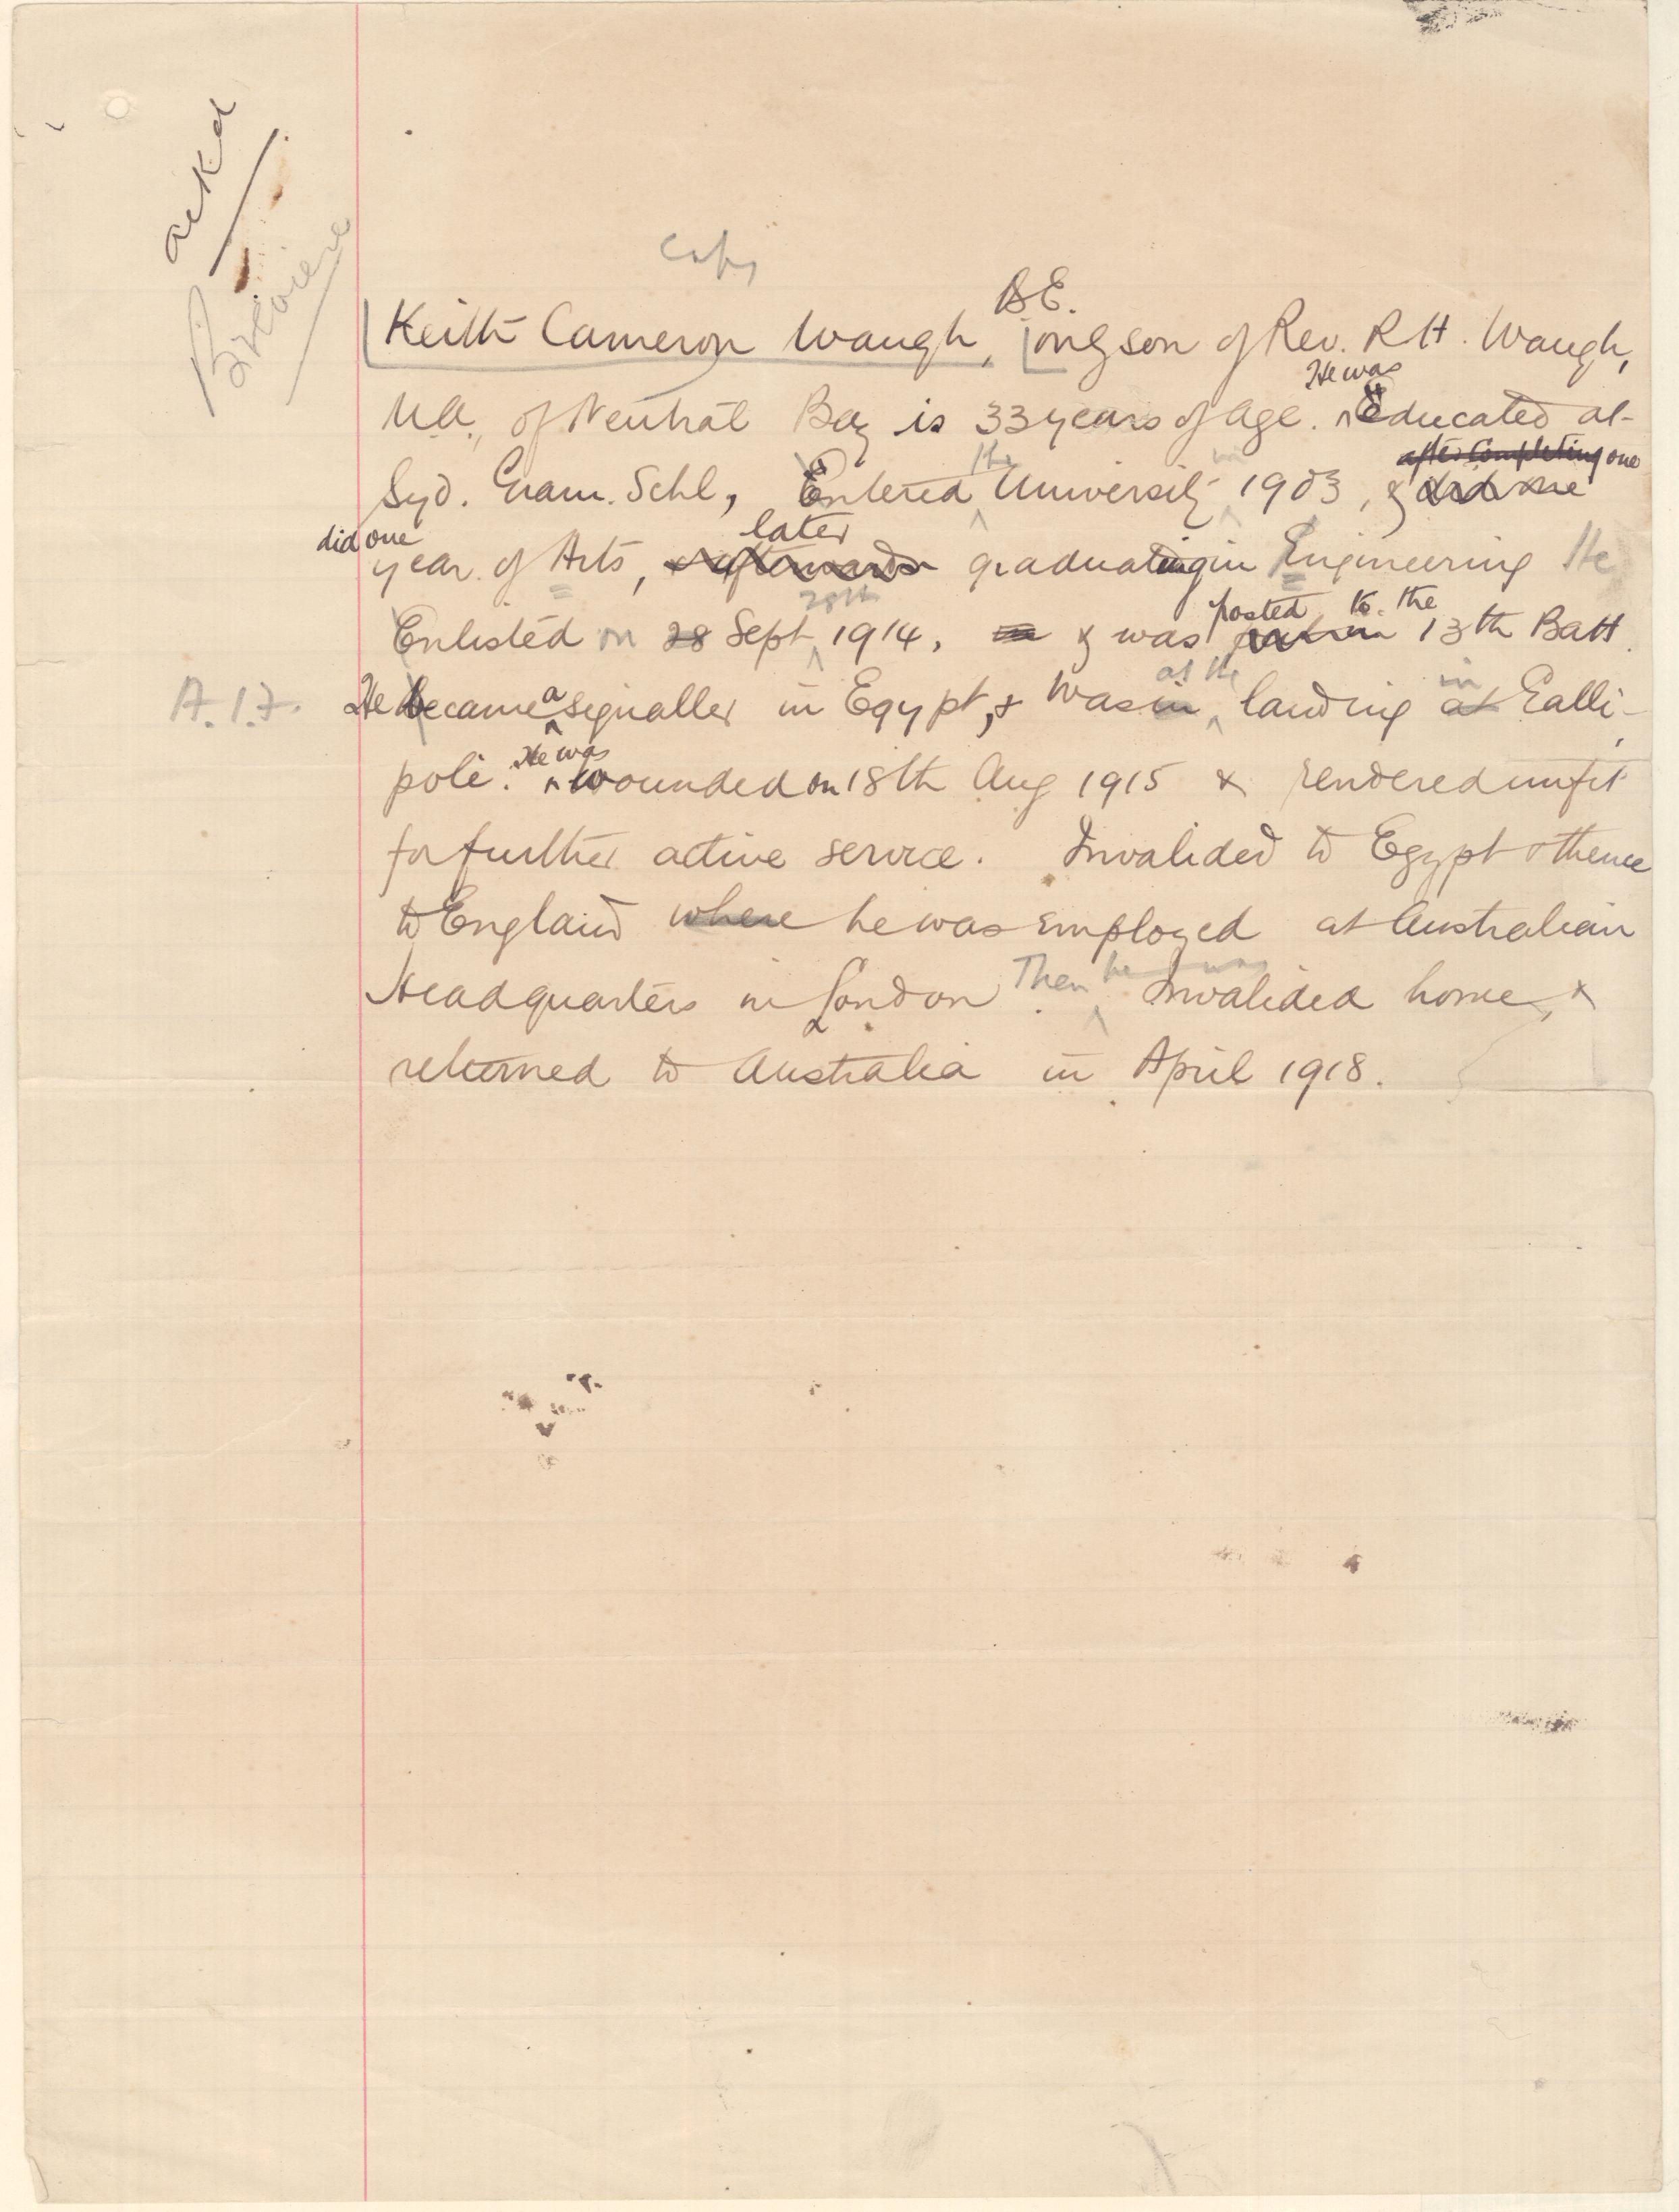 ackd
Copy
B.E.
Keith Cameron Waugh, only son of Rev. R H. Waugh,
He was
M.A., of Neutral Bay is 33 years of age. educated at
the in after completing one
Syd. Gram. Schl, entered University 1903, & did one
did one later
year of Arts, & afterwards graduating in Engineering He
28th posted to the
Enlisted on 28 Sept 1914, & was 13th Batt.
at the in
A.17. He became a signaller in Egypt, & was in landing at Galli-
He was
poli. wounded on 18th Aug 1915 & rendered unfit
for further active service. Invalided to Egypt & thence
to England where he was employed at Australian
Then he was
Headquarters in London. Invalided home, &
returned to Australia in April 1918.